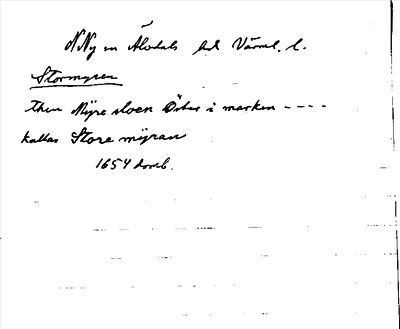 N Ny sn Älvdals hd Värml. l.
Stormyren
then Myre sloen Öster i marken ----
kallas Store myran
1654 domb.